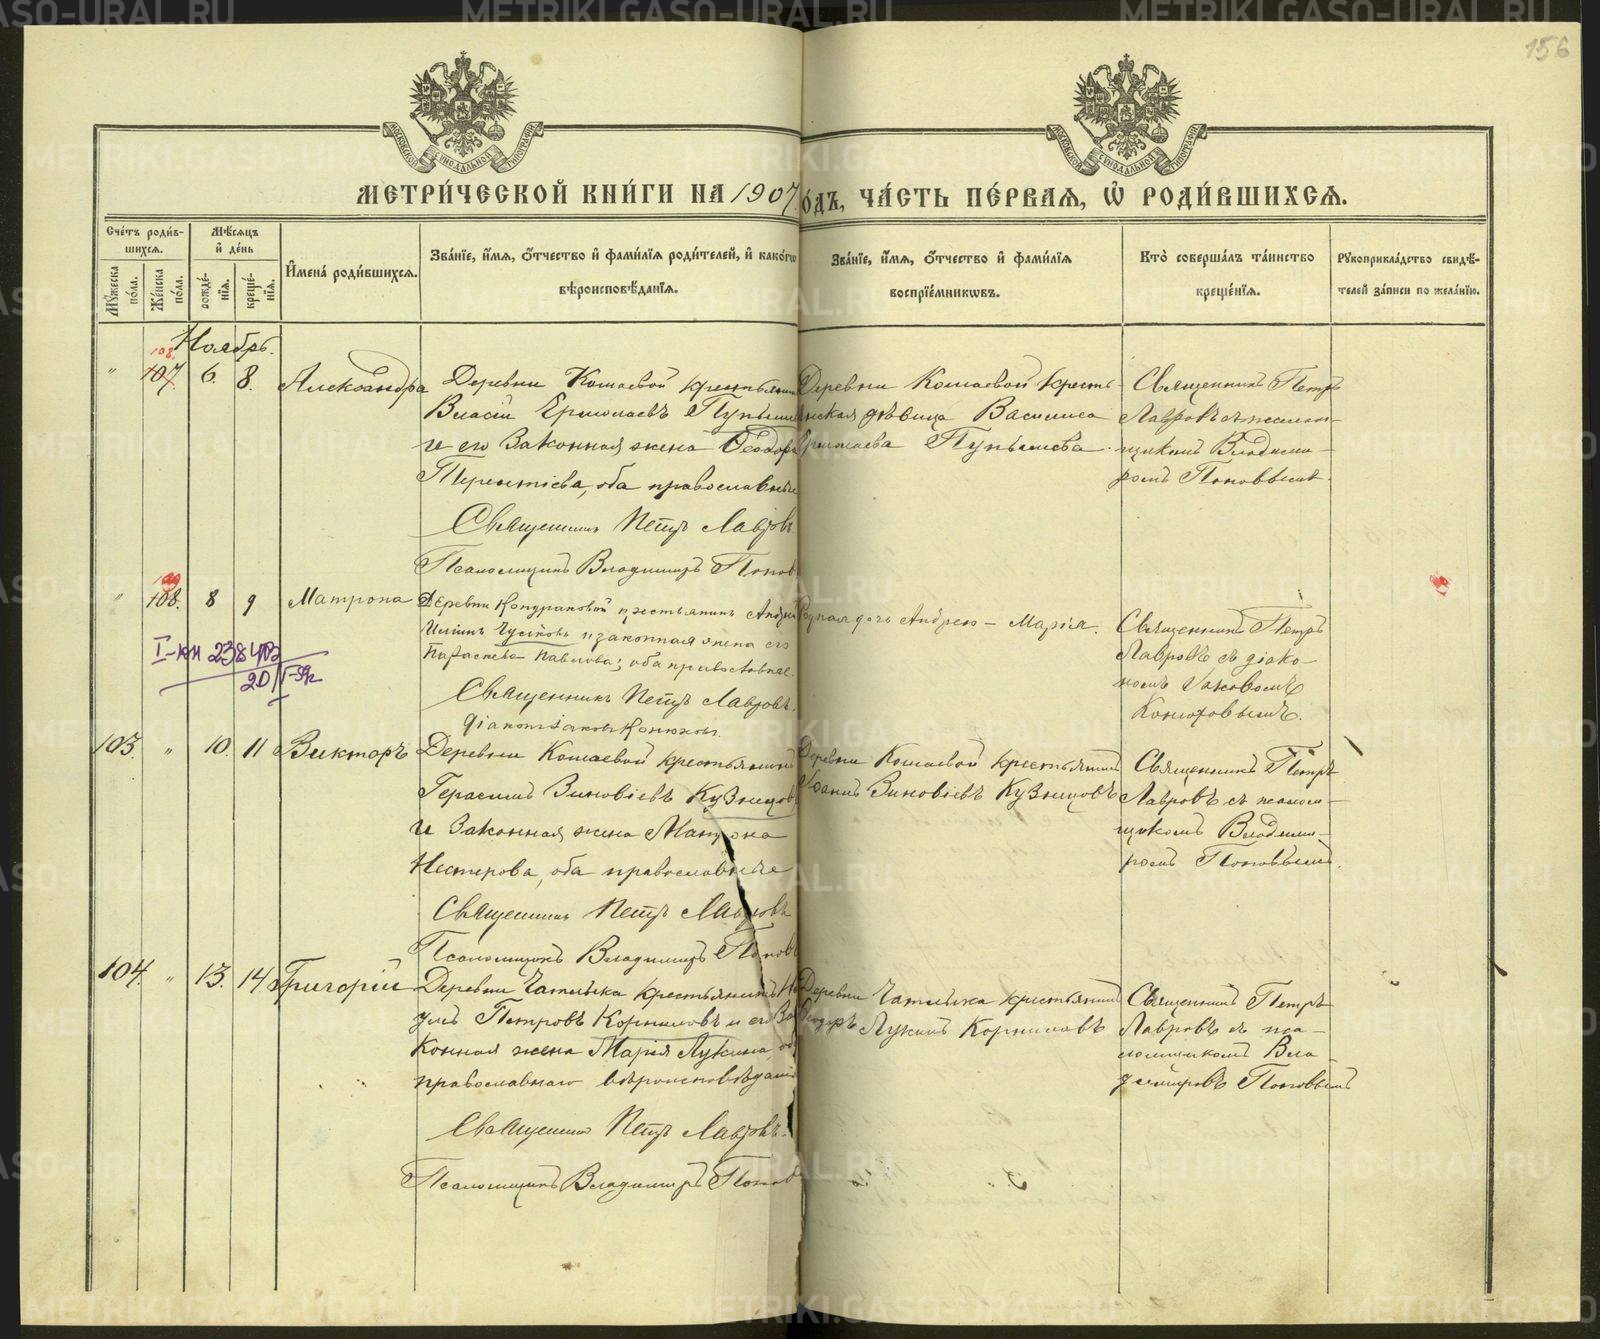 156
МЕТРИ́ЧЕСКОЙ КНИ́ГИ НА 1907 О́ДЪ, ЧА́СТЬ ПЕ́РВАѦ, Ѡ҆ РОДИ́ВШИХСѦ.
Сче́тъ роди́в-
шихсѧ.
Мѣ́сѧцъ
и҆ де́нь
Мꙋ́жеска по́ла.
Же́нска по́ла.
рожде́-
нїѧ.
креще́-
нїѧ.
И҆мена̀ роди́вшихсѧ.
Зва́нїе, и҆́мѧ, ѻ҆́тчество и҆ фами́лїѧ роди́телей, и҆ како́гѡ
вѣроисповѣ́данїѧ.
Зва́нїе, и҆́мѧ, ѻ҆́тчество и҆ фами́лїѧ
воспрїе́мникѡвъ.
Кто̀ соверша́лъ та́инство
креще́нїѧ.
Рꙋкоприкла́дство свидѣ́-
телей за́писи по жела́нїю.
Ноябрь.
108.
" 107. 6. 8. Александра
Деревни Кошаевой крестьянин
Власій Ермолаевъ Пупыше
и его законная жена Ѳеодора
Терентіева, оба православные
Священникъ Петръ Лавровъ
Псаломщикъ Владимиръ Попов
Деревни Кошаевой кресть-
янская дѣвица Василиса
Ермолаева Пупышева.
Священникъ Петръ
Лавровъ съ псалом-
щикомъ Владими-
ромъ Поповымъ.
109
" 108. 8 9 Матрона
Деревни Кондраковой крестьянинъ Андрей
Ильинъ Гусиковъ и законная жена его
Параскева Павлова; оба православные.
Священникъ Петръ Лавровъ.
Діаконъ Іаковъ Конюховъ.
Родная дочь Андрея - Марія.
Священникъ Петръ
Лавровъ съ діако-
номъ Іаковомъ
Конюховымъ.
103. " 10. 11 Викторъ
Деревни Кошаевой крестьянинъ
Герасимъ Зиновіевъ Кузнецовъ
и законная жена Матрона
Нестерова, оба православные
Священникъ Петръ Лавровъ
Псаломщикъ Владимиръ Поповъ
Деревни Кошаевой крестьянинъ
Іоаннъ Зиновіевъ Кузнецовъ
Священникъ Петръ
Лавровъ съ псалом-
щикомъ Владими-
ромъ Поповымъ.
104. " 13. 14 Григорій
Деревни Чатлыка крестьянинъ На
умъ Петровъ Корниловъ и его за
конная жена Марія Лукина, об
православнаго вѣроисповѣданія
Священникъ Петръ Лавровъ.
Псаломщикъ Владимиръ Попов
Деревни Чатлыка крестьянинъ
Ѳеодоръ Лукинъ Корниловъ
Священникъ Петръ
Лавровъ съ пса-
ломщикомъ Вла-
диміромъ Поповымъ